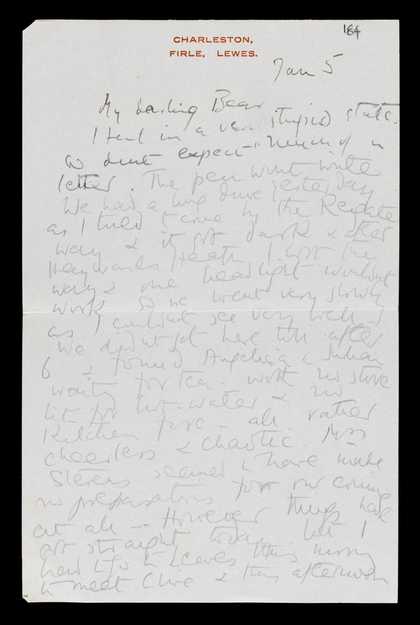 164
CHARLESTON,
FIRLE, LEWES.
Jan 5
My darling Bear
I feel in a very stupid state
so dont expect much of a
letter. The pen wont write
We had a long drive yesterday
as I tried to come by the Reigate
way & it got dark & after
Haywards Heath I lost the
way & one headlight wouldnt
work so we went very slowly
as I couldnt see very well
We didnt get here till after
6 & found Angelica & Julian
waiting for tea with no stove
lit for hot water & no
Kitchen fire - all rather
cheerless & chaotic. Miss
Stevens seemed to have made
no preparations for our coming
at all - However things have
got straight today but I
had to go to Lewes this morning
to meet Clive & this afternoon